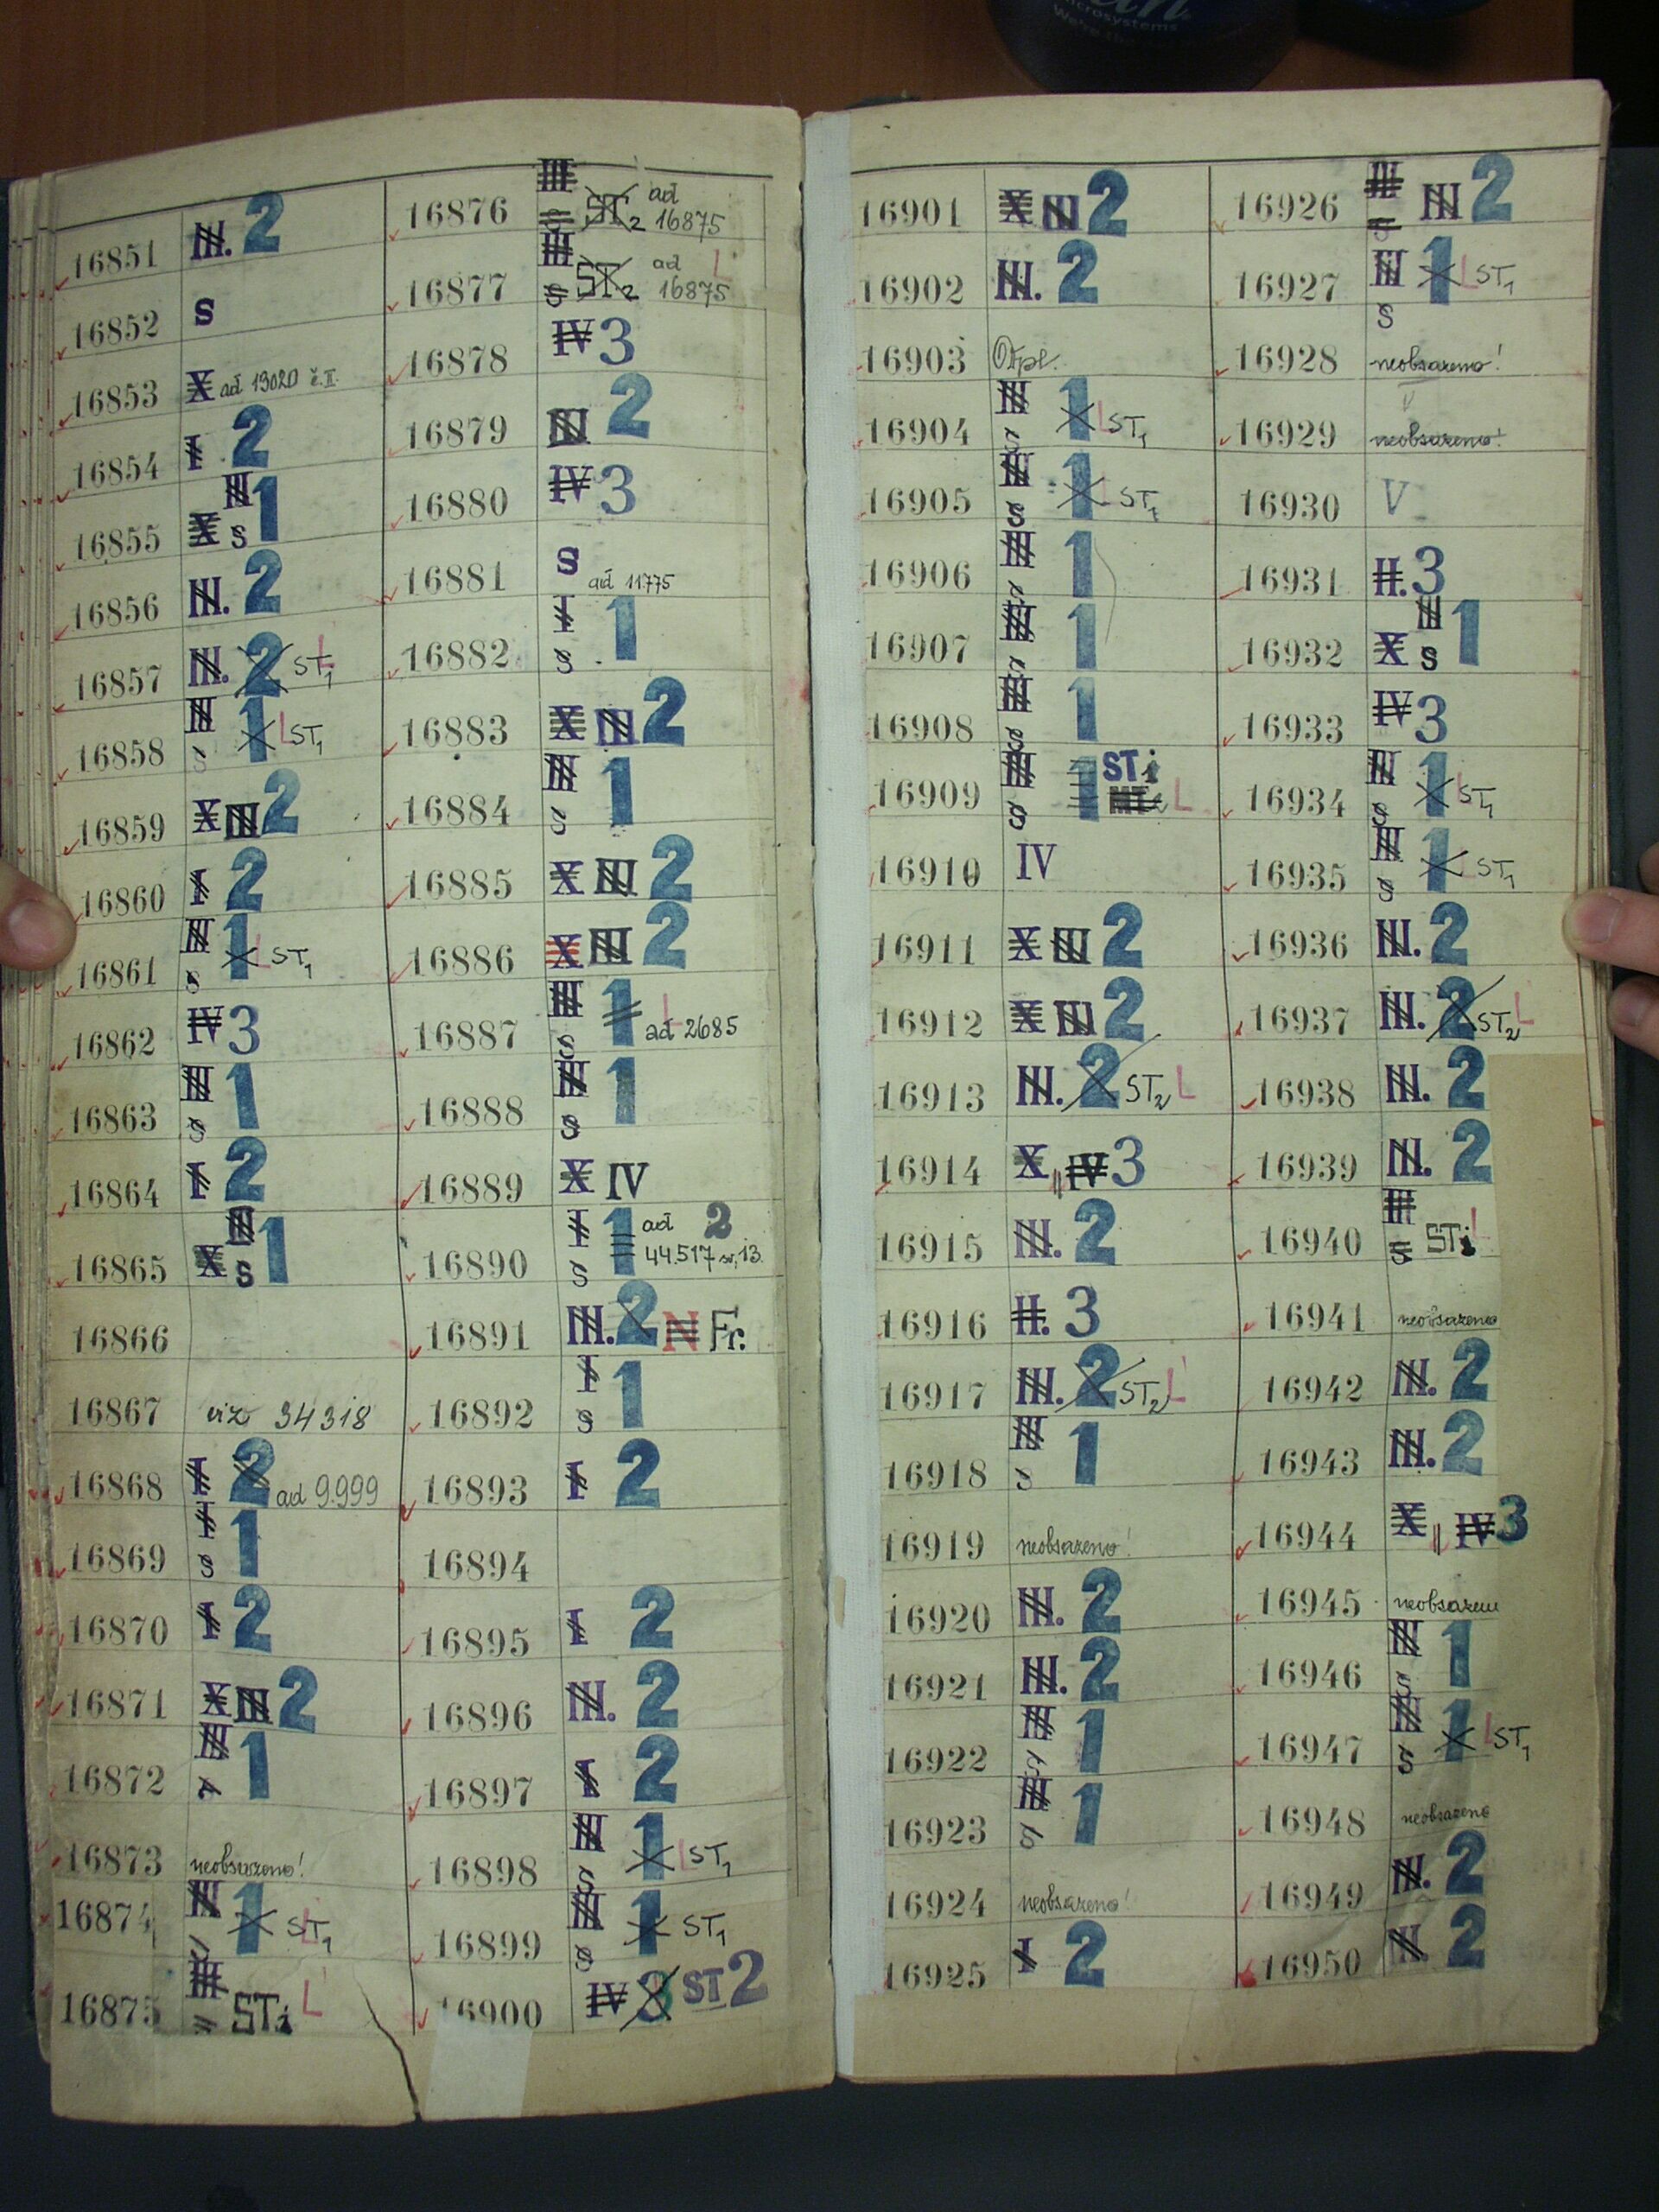 in
Microsystems
We're the dot
16851 III. 2
16852 S
16853 X ad 13020 č.II.
16854 I 2
16855 X III S 1
16856 III. 2
16857 III. 2 ST1 L
16858 III S 1 L ST1
16859 X III 2
16860 I 2
16861 III S 1 L ST1
16862 IV 3
16863 III S 1
16864 I 2
16865 X III S 1
16866
16867 viz 34318
16868 I 2 ad 9.999
16869 I S 1
16870 I 2
16871 X III 2
16872 III s 1
16873 neobsazeno!
16874 III s 1 L ST1
16875 III s STi L
16876 III S ST2 ad 16875
16877 III S ST2 ad 16875 L
16878 IV 3
16879 III 2
16880 IV 3
16881 S ad 11775
16882 I S 1
16883 X III 2
16884 III S 1
16885 X III 2
16886 X III 2
16887 III S 1 L ad 2685
16888 III S 1
16889 X IV
16890 I S 1 ad 2 44.517
16891 III. 2 N Fr.
16892 I S 1
16893 I 2
16894
16895 I 2
16896 III. 2
16897 I 2
16898 III S 1 L ST1
16899 III S 1 ST1
16900 IV 3 ST 2
16901 X III 2
16902 III. 2
16903 Odpl.
16904 III S 1 L ST1
16905 III S 1 L ST1
16906 III s 1
16907 III s 1
16908 III S 1
16909 III S 1 STi L
16910 IV
16911 X III 2
16912 X III 2
16913 III. 2 ST2 L
16914 X IV 3
16915 III. 2
16916 II. 3
16917 III. 2 ST2 L
16918 III S 1
16919 neobsazeno!
16920 III. 2
16921 III. 2
16922 III S 1
16923 III S 1
16924 neobsazeno!
16925 I 2
16926 III S III 2
16927 III S 1 L ST1
16928 neobsazeno!
16929 neobsazeno!
16930 V
16931 II. 3
16932 X III S 1
16933 IV 3
16934 III S 1 L ST1
16935 III S 1 L ST1
16936 III. 2
16937 III. 2 ST2 L
16938 III. 2
16939 III. 2
16940 III S STi L
16941 neobsazeno
16942 III. 2
16943 III. 2
16944 X IV 3
16945 neobsazeno
16946 III S 1
16947 III S 1 L ST1
16948 neobsazeno
16949 III. 2
16950 III. 2